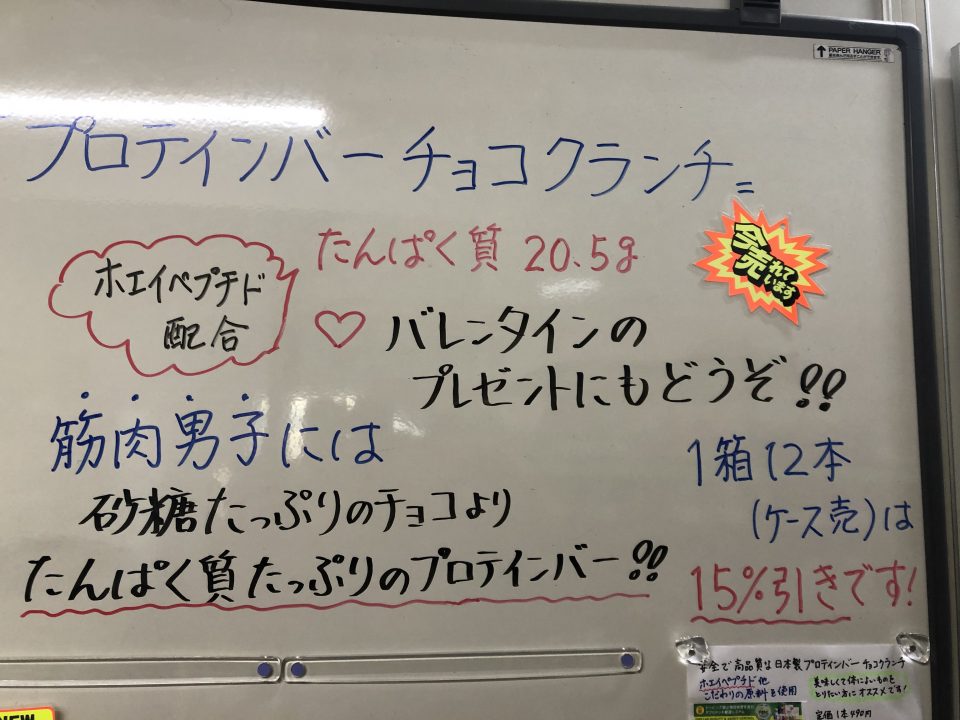 ↑ PAPER HANGER
プロテインバーチョコクランチ
たんぱく質 20.5g
今売れています
ホエイペプチド
配合
♡ バレンタインの
プレゼントにもどうぞ!!
筋肉男子には
砂糖たっぷりのチョコより
たんぱく質たっぷりのプロテインバー!!
1箱12本
(ケース売)は
15%引きです!
安全で高品質な日本製プロテインバーチョコクランチ
ホエイペプチド他
こだわりの原料を使用
美味しくて体によいものを
とりたい方にオススメです!
定価1本490円
NEW